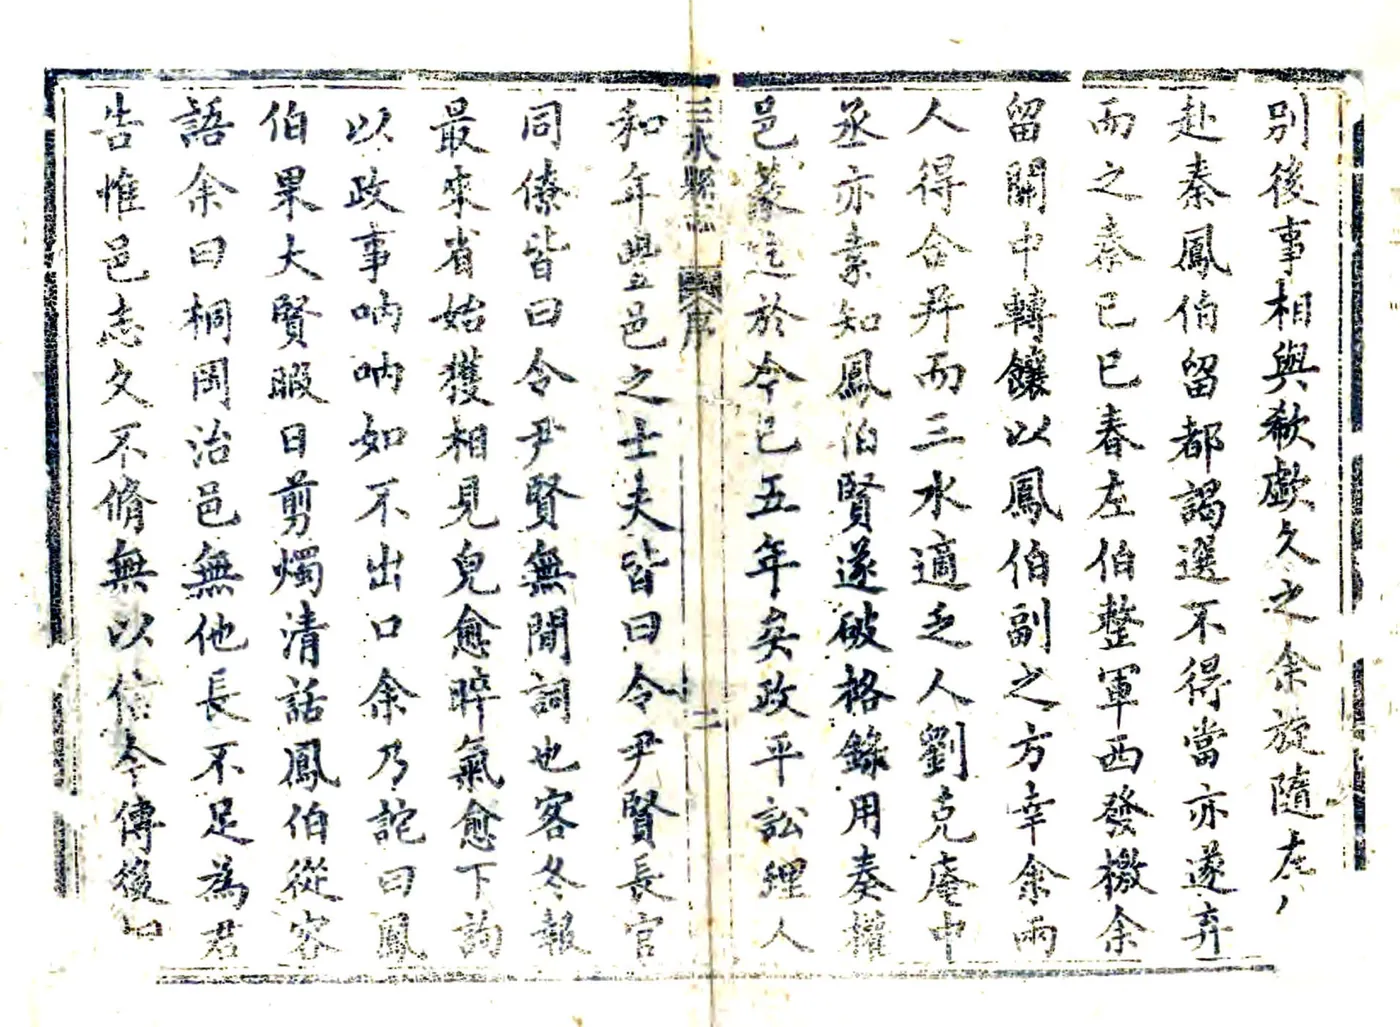 別後事相與欷歔久之余旋隨左
赴秦鳳伯留都謁選不得當亦遂弃
而之秦己巳春左伯整軍西發檄余
留關中轉饟以鳳伯副之方幸余兩
人得合并而三水適乏人劉克庵中
丞亦素知鳳伯賢遂破格錄用奏權
邑篆迄於今已五年矣政平訟理人
三水縣志 序 二
和年豐邑之士夫皆曰令尹賢長官
同僚皆曰令尹賢無閒詞也客冬報
最來省始獲相見皃愈晬氣愈下詢
以政事吶吶如不出口余乃詫曰鳳
伯果大賢暇日剪燭清話鳳伯從容
語余曰桐岡治邑無他長不足為君
告惟邑志久不脩無以信今傳後